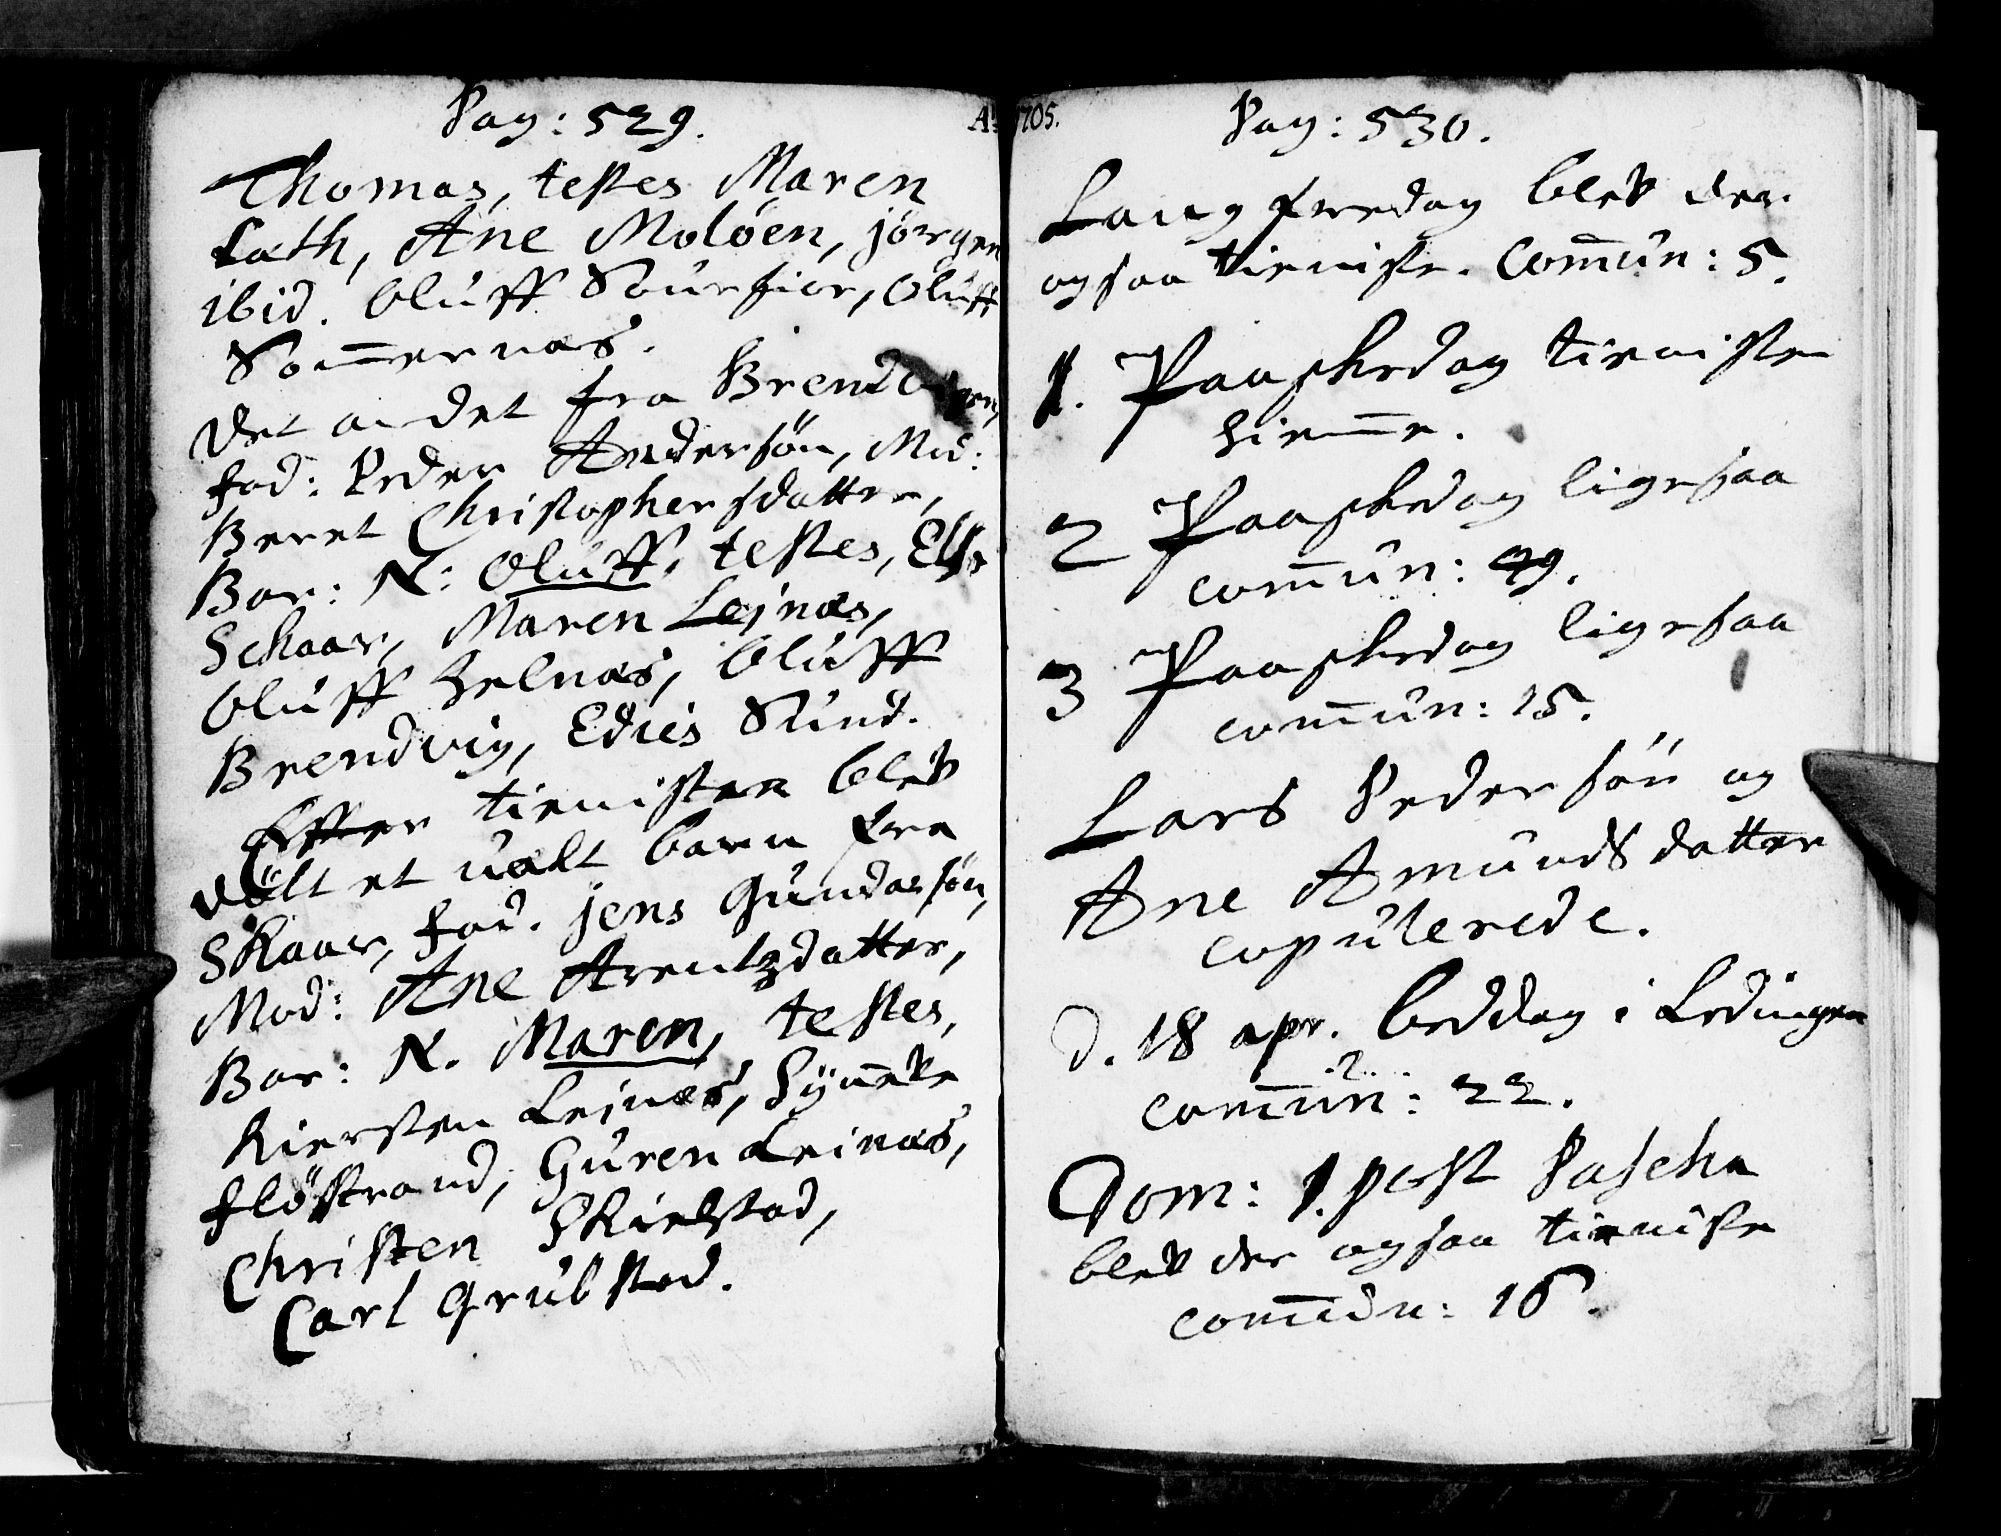 Pag: 529.
Thomas, testes Maren
Cath, Ane Molöen, jörgen
ibid. Oluff Sourfior, Oluff
Som̄ernæs.
Det andet fra Brendvigen,
fad: Peder Andersön, Mod:
Beret Christophersdatter,
Bar: N: Oluff, testes, Else
Schaar, Maren Lejnæs,
Oluff Helnæs, Oluff
Brendvig, Edies Sund.
Effter tienisten blef
döbt et uækt barn fra
Skaar, fad. jens Gundersön,
Mod: Ane Arentzdatter,
Bar: N. Maren, testes,
Kiersten Lejnæs, Syn̄eve
flöstrand, Guren Leinæs,
Christen Skielstad,
Carl Grubstad.
Ao 1705.
Pag: 530.
Langfredag blef der
ogsaa tieniste. Com̄un: 5.
1. Paaskedag tienisten
hiem̄e.
2 Paaskedag ligesaa
com̄un: 49.
3 Paaskedag ligesaa
com̄un: 15.
Lars Pedersön og
Ane Amundsdatter
copulerede.
d. 18 apr. beddag i Lødingen
com̄un: 22.
Dom: 1. post Pascha
blef der ogsaa tieniste
com̄un: 16.